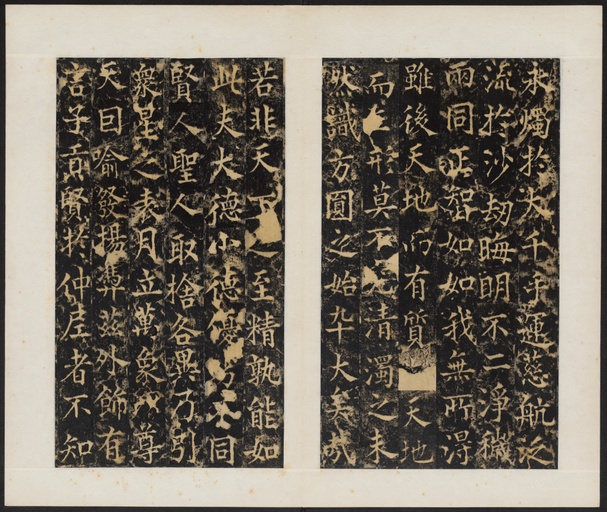 永燭於大千乎運慈航泛
流於沙劫晦明不二淨穢
雨同正智如如我無所得
雖後天地而有質天地
而形莫不清濁之未
然識方圓之始九大矣哉
若非天下之至精孰能如
此夫大德小德優劣不同
賢人聖人取捨各異乃引
衆星之表月立萬象以尊
天曰喻發揚茲外飾有
言子貢賢於仲尼者不知